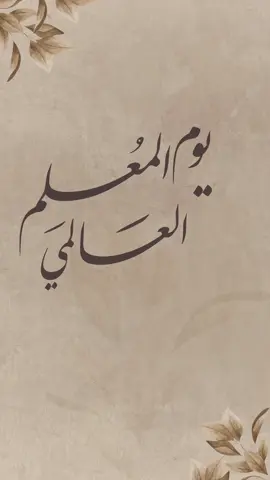 يوم المعُلم
العَالميَ